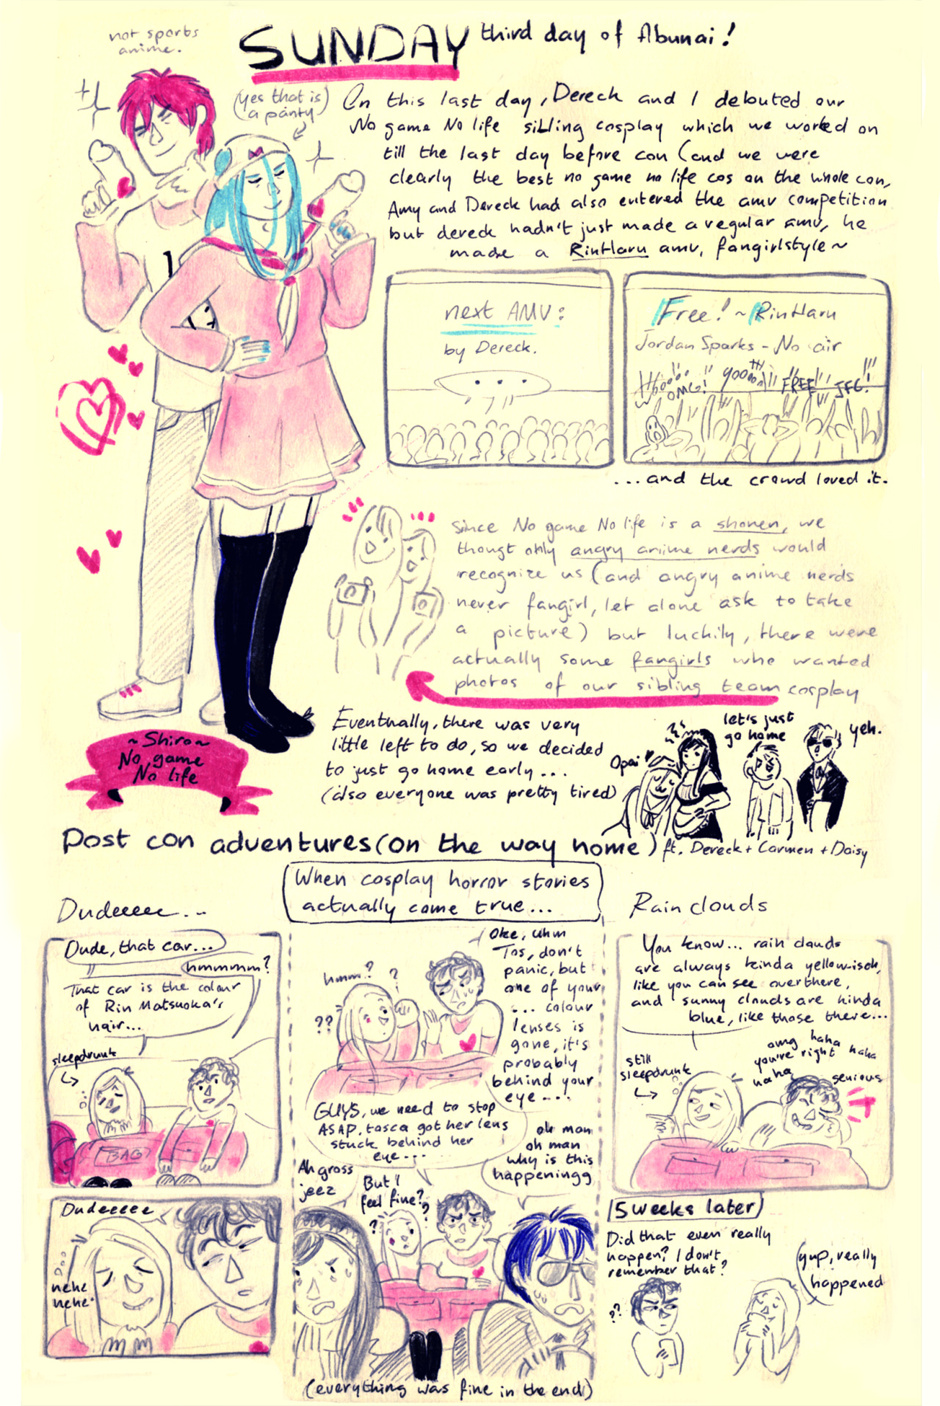 not sports
anime.
SUNDAY third day of Abunai!
(yes that is
a panty)
On this last day, Dereck and I debuted our
No game No life sibling cosplay which we worked on
till the last day before con (and we were
clearly the best no game no life cos on the whole con,
Amy and Dereck had also entered the amv competition
but dereck hadn't just made a regular amv, he
made a RinHaru amv, fangirlstyle~
next AMV:
by Dereck.
Free! ~ RinHaru
Jordan Sparks - No air
OMG!
FREE
JFC!
...and the crowd loved it.
Since No game No life is a shonen, we
thougt only angry anime nerds would
recognize us (and angry anime nerds
never fangirl, let alone ask to take
a picture) but luckily, there were
actually some fangirls who wanted
photos of our sibling team cosplay
~Shiro~
No game
No life
Eventually, there was very
little left to do, so we decided
to just go home early...
(also everyone was pretty tired)
Opai
let's just
go home
yeh.
Post con adventures (on the way home) ft. Dereck + Carmen + Daisy
Dudeeeee...
Dude, that car...
hmmmmm?
That car is the colour
of Rin Matsuoka's
hair...
sleepdrunk
BAG
Dudeeeee
hehe
hehe
When cosplay horror stories
actually come true...
hmm?
?
??
Oke, uhm
Tos, don't
panic, but
one of your
... colour
lenses is
gone, it's
probably
behind your
eye....
GUYS, we need to stop
ASAP, tosca got her lens
stuck behind her
eye....
oh man
oh man
why is this
happeningg
Ah gross
jeez
But I
feel fine?
?
?
(everything was fine in the end)
Rain clouds
You know... rain clouds
are always kinda yellow-isch,
like you can see over there,
and sunny clouds are kinda
blue, like those there...
omg haha
you're right haha
haha
still
sleepdrunk
serious
5 weeks later
Did that even really
happen? I don't
remember that?
??
yup, really
happened